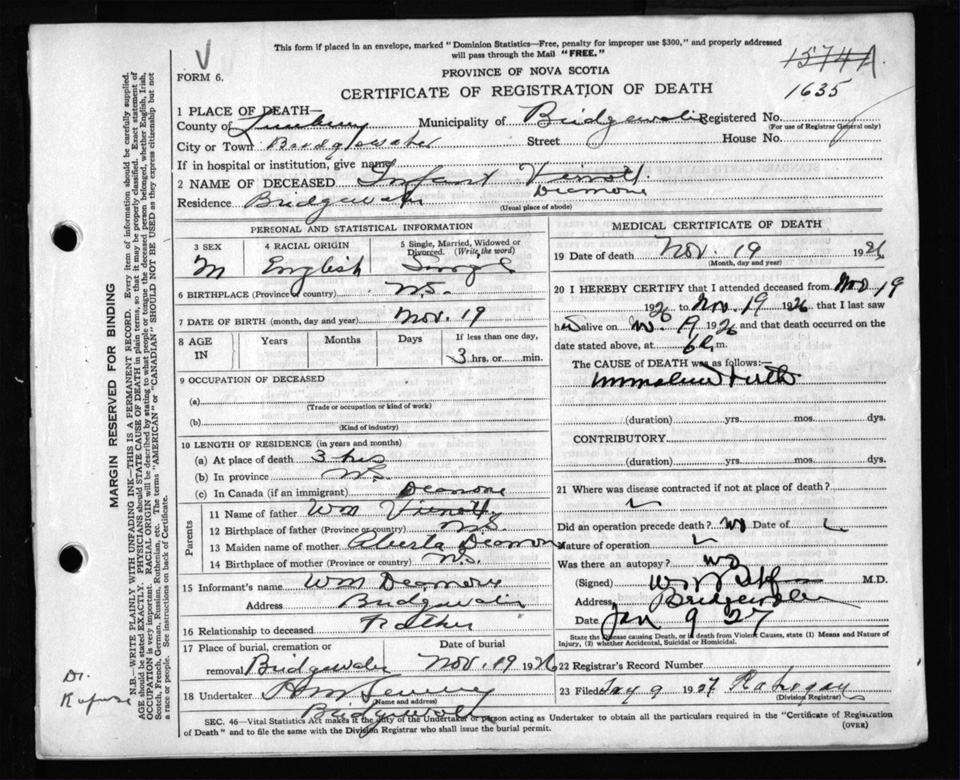 This form if placed in an envelope, marked "Dominion Statistics—Free, penalty for improper use $300," and properly addressed
will pass through the Mail "FREE."
V
15747A
1635
FORM 6.
PROVINCE OF NOVA SCOTIA
CERTIFICATE OF REGISTRATION OF DEATH
1 PLACE OF DEATH—
County of Lunburg Municipality of Bridgewater Registered No.
(For use of Registrar General only)
City or Town Bridgewater Street House No.
If in hospital or institution, give name
2 NAME OF DECEASED Infant Veinott
Deamone
Residence Bridgewater
(Usual place of abode)
PERSONAL AND STATISTICAL INFORMATION
3 SEX 4 RACIAL ORIGIN 5 Single, Married, Widowed or Divorced. (Write the word)
M English Single
6 BIRTHPLACE (Province or country) N.S.
7 DATE OF BIRTH (month, day and year) Nov. 19
8 AGE IN Years Months Days If less than one day,
3 hrs. or min.
9 OCCUPATION OF DECEASED
(a)
(Trade or occupation or kind of work)
(b)
(Kind of industry)
10 LENGTH OF RESIDENCE (in years and months)
(a) At place of death 3 hrs
(b) In province N.S.
(c) In Canada (if an immigrant)
Deamone
Parents
11 Name of father Wm Veinott
12 Birthplace of father (Province or country) N.S
13 Maiden name of mother Alberta Deamone
14 Birthplace of mother (Province or country) N.S.
15 Informant's name Wm Deamone
Address Bridgewater
16 Relationship to deceased Father
17 Place of burial, cremation or removal Date of burial
Bridgewater Nov. 19 1926
18 Undertaker
(Name and address)
Bridgewater
MEDICAL CERTIFICATE OF DEATH
19 Date of death Nov. 19 1926
(Month, day and year)
20 I HEREBY CERTIFY that I attended deceased from Nov 19
1926 to Nov. 19 1926, that I last saw
him alive on N. 19 1926 and that death occurred on the
date stated above, at 6 P. m.
The CAUSE OF DEATH was as follows:—
Immature birth
(duration) yrs. mos. dys.
CONTRIBUTORY
(duration) yrs. mos. dys.
21 Where was disease contracted if not at place of death?
Did an operation precede death? no Date of
Nature of operation
Was there an autopsy? no
(Signed) M.D.
Address Bridgewater
Date Jan 9 27
State the Disease causing Death, or in death from Violent Causes, state (1) Means and Nature of
Injury, (2) whether Accidental, Suicidal or Homicidal.
22 Registrar's Record Number
23 Filed Jany 9 1927
(Division Registrar)
SEC. 46—Vital Statistics Act makes it the duty of the Undertaker or person acting as Undertaker to obtain all the particulars required in the "Certificate of Registration
of Death" and to file the same with the Division Registrar who shall issue the burial permit.
(OVER)
MARGIN RESERVED FOR BINDING
N.B.—WRITE PLAINLY WITH UNFADING INK—THIS IS A PERMANENT RECORD. Every item of information should be carefully supplied.
AGE should be stated EXACTLY. PHYSICIANS should STATE CAUSE OF DEATH in plain terms, so that it may be properly classified. Exact statement of
OCCUPATION is very important. RACIAL ORIGIN will be described by stating to what people or tongue the deceased person belonged, whether English, Irish,
Scotch, French, German, Russian, Ruthenian, etc. The terms "AMERICAN" or "CANADIAN" SHOULD NOT BE USED as they express citizenship but not
a race or people. See instructions on back of Certificate.
Dr.
Rafuse